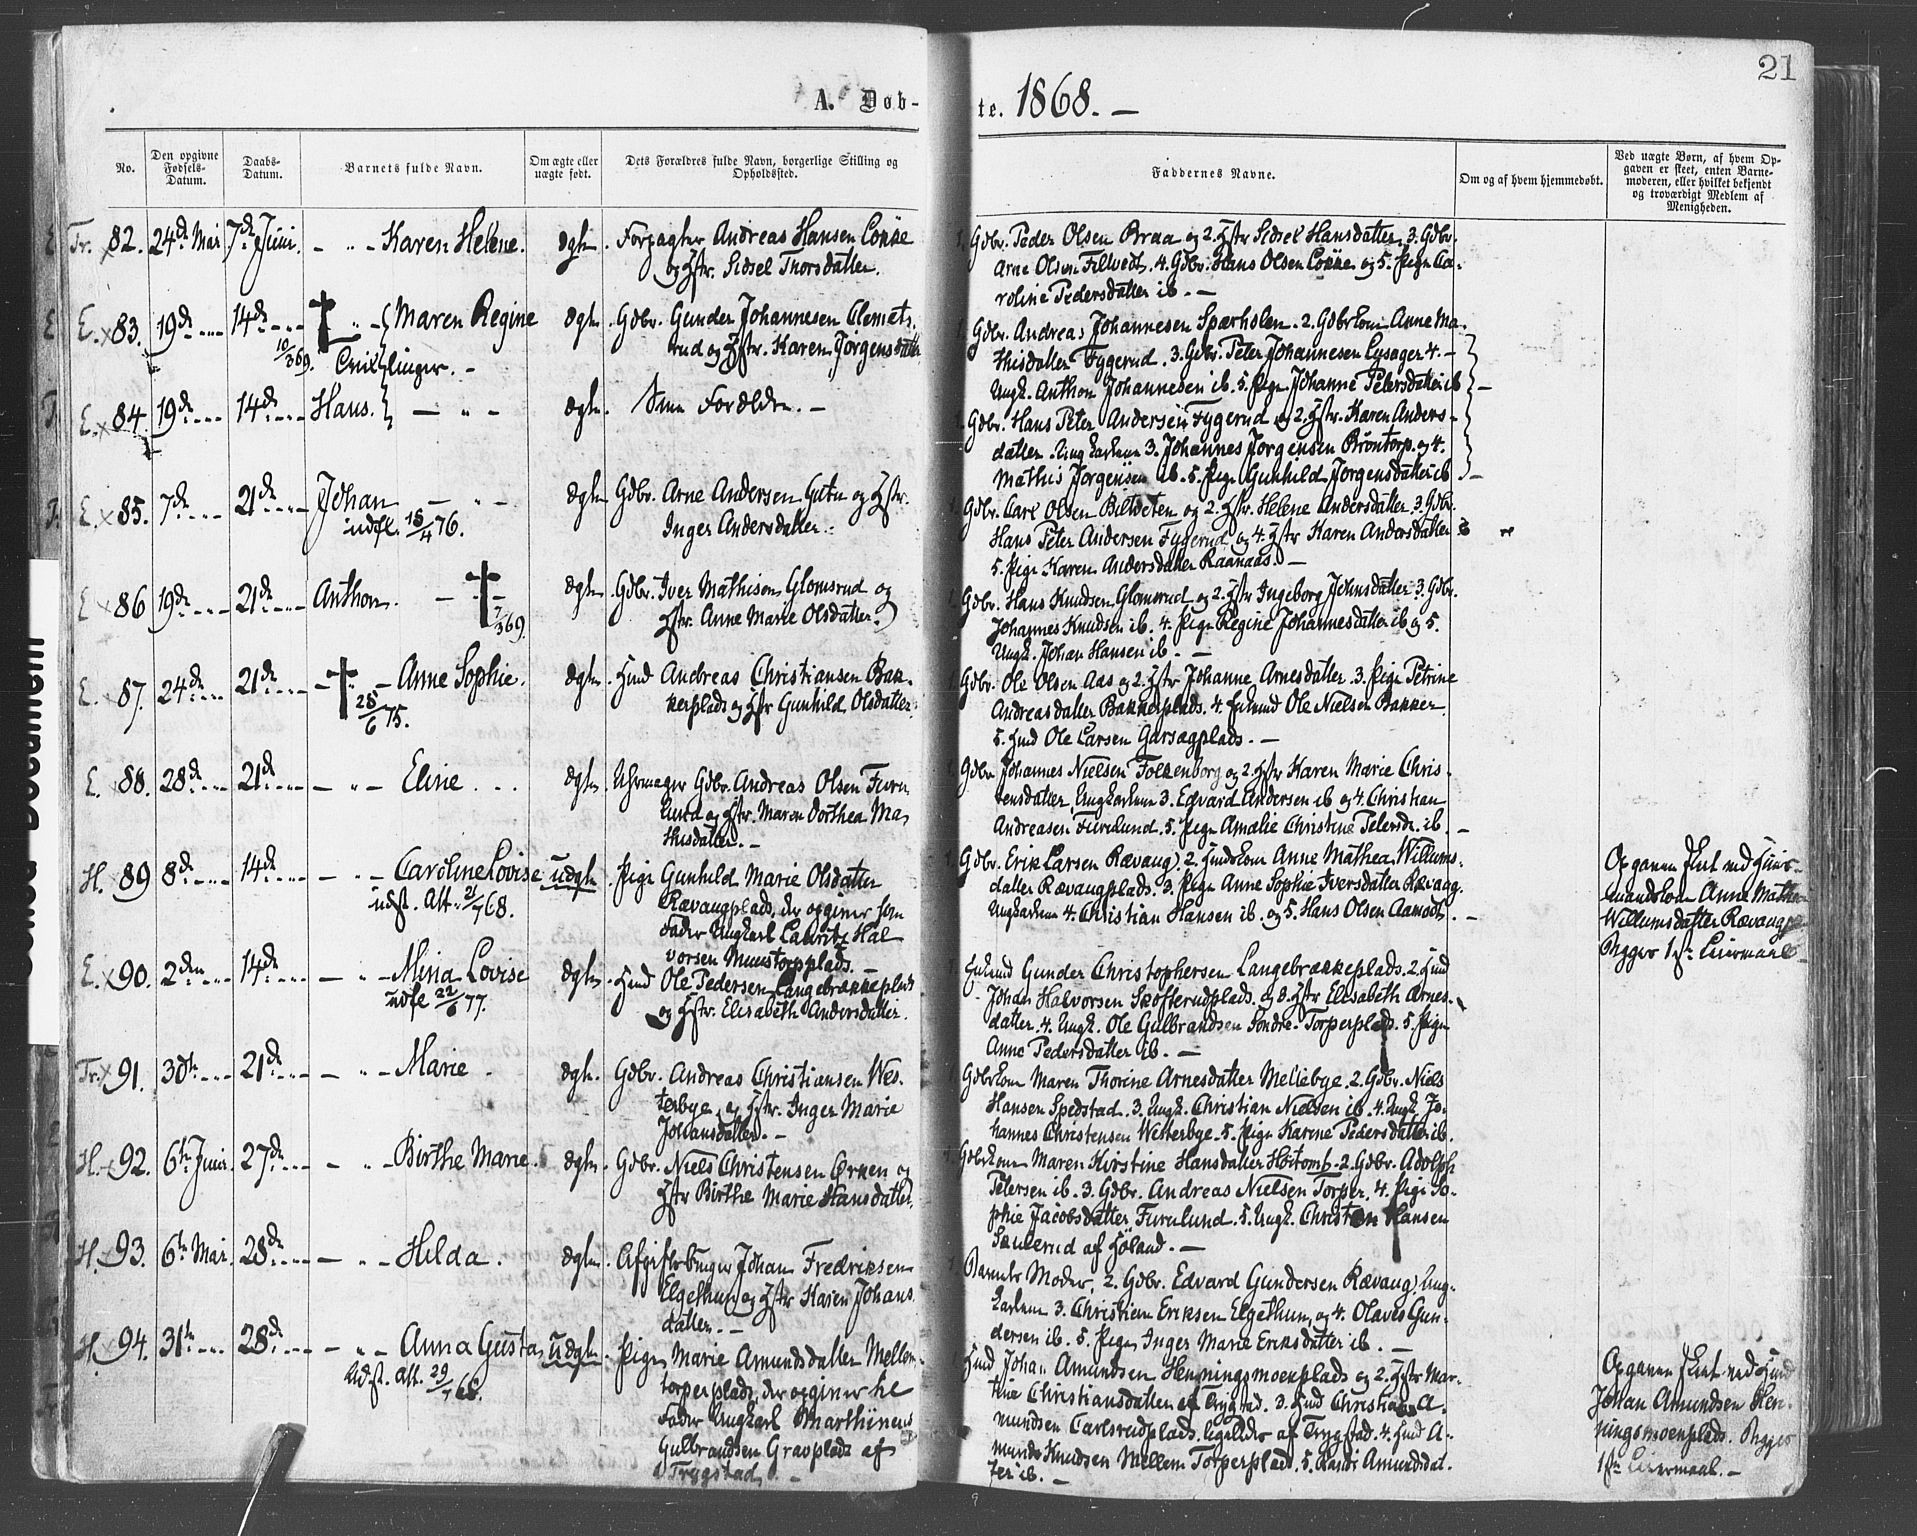 21
A. Døb-
te. 1868. —
No.
Den opgivne Fødsels-Datum.
Daabs-Datum.
Barnets fulde Navn.
Om ægte eller uægte født.
Dets Forældres fulde Navn, borgerlige Stilling og Opholdssted.
Faddernes Navne.
Om og af hvem hjemmedøbt.
Ved uægte Børn, af hvem Op-
gaven er skeet, enten Barne-
moderen, eller hvilket bekjendt
og troværdigt Medlem af
Menigheden.
Tr. 82. 24de Mai 7de Juni. — " — Karen Helene. ægte. Forpagter Andreas Hansen Løkke
og Hstr. Sidsel Thorsdatter.
1. Gdbr. Peder Olsen Braa og 2. Hstr Sidsel Hansdatter. 3. Gdbr.
Arne Olsen Filtvedt. 4. Gdbr. Hans Olsen Løkke og 5. Pige Ca-
roline Pedersdatter ib. —
E. 83. 19de 14de Maren Regine ægte. Gdbr. Gunder Johannesen Clemets-
rud og Hstr. Karen Jørgensdatter
10/3 69. Tvillinger. —
1. Gdbr. Andreas Johannesen 2. Gdbrkone Anne Ma-
thisdatter Fygerud. 3. Gdbr. Peter Johannesen Lysager 4. —
Ungk. Anthon Johannesen ib. 5. Pige Johanne Petersdatter ib
E. 84. 19de 14de Hans. — " — ægte. Samme Forældre. —
1. Gdbr. Hans Peter Andersen Fygerud og 2. Hstr. Karen Anders-
datter. Ungkarlene 3. Johannes Jørgensen Brøntorp. og 4.
Mathis Jørgensen ib. 5. Pige Gunhild Jørgensdatter ib
E. 85. 7de 21de Johan — " — ægte Gdbr. Arne Andersen Gutu og Hstr.
Inger Andersdatter.
udfl. 15/4 76.
1. Gdbr. Carl Olsen og 2. Hstr. Helene Andersdatter. 3. Gdbr.
Hans Peter Andersen Fygerud og 4. Hstr Karen Andersdatter ib
5. Pige Karen Andersdatter Raanaas. —
E. 86 19de 21de Anthon. ægte. Gdbr. Iver Mathisen Glomsrud og
Hstr. Anne Marie Olsdatter.
7/3 69.
1. Gdbr. Hans Knudsen Glomsrud og 2. Hstr Ingeborg Johnsdatter 3. Gdbr.
Johannes Knudsen ib. 4. Pige Regine Johannesdatter ib og 5.
Ungk. Johan Hansen ib. —
E. 87. 24de 21de Anne Sophie. ægte. Hmd Andreas Christiansen Bak-
kerplads og Hstr Gunhild Olsdatter.
28/6 75.
1. Gdbr. Ole Olsen Aas og 2. Hstr Johanne Arnesdatter. 3. Pige Petrine
Andreasdatter Bakkerplads. 4. Enkemd Ole Nielsen Bakker.
5. Hmd Ole Larsen Garsegplads. —
E. 88. 28de 21de — " — Eline . . . ægte. Uhrmager Gdbr. Andreas Olsen Furu-
lund og Hstr. Maren Dorthea Ma-
thisdatter. —
1. Gdbr. Johannes Nielsen Folkenborg og 2. Hstr Karen Marie Chris-
tensdatter. Ungkarlene 3. Edvard Andersen ib og 4. Christian
Andreasen Furulund. 5. Pige Amalie Christine Petersdr. ib. —
H. 89 8de 14de — " — Caroline Lovise uægte. Pige Gunhild Marie Olsdatter
Rævaugplads, der opgiver som
Fader Ungkarl Lauritz Hal-
vorsen Munstorpplads. —
udst. Att. 21/7 68.
1. Gdbr. Erik Larsen Rævaug, 2. Hmdskone Anne Mathea Willums-
datter Rævaugplads. 3. Pige Anne Sophie Iversdatter Rævaug.
Ungkarlene 4. Christian Hansen ib. og 5. Hans Olsen Aamodt. —
Opgaven skeet ved Huus-
mandskone Anne Mathea
Willumsdatter Rævaugpl.
Begges 1ste Leiermaal
E. 90. 2den 14de — " — Mina Lovise ægte. Hmd Ole Pedersen Langebrækkeplads
og Hstr. Elisabeth Andersdatter.
udfl 22/6 77.
1. Enkemd Gunder Christophersen Langebrækkeplads. 2. Hmd
Johan Halvorsen Skofterudplads. og 3. Hstr Elisabeth Arnes-
datter. 4. Ungk. Ole Gulbrandsen Søndre-Torperplads. 5. Pige
Anne Pedersdatter ib. —
Tr. 91. 30te 21de — " — Marie . ægte. Gdbr. Andreas Christiansen Wes-
terbye og Hstr. Inger Marie
Johansdatter. —
1. Gdbrkone Maren Thorine Arnesdatter Mellebye. 2. Gdbr. Niels
Hansen Spedstad. 3. Ungk. Christian Nielsen ib. 4. Ungk. Jo-
hannes Christensen Wetterbye. 5. Pige Karine Pedersdatter ib.
H. 92. 6te Juni. 27de — " — Birthe Marie. ægte. Gdbr. Niels Christensen Ørken og
Hstr Birthe Marie Hansdatter.
1. Gdbrkone Maren Kirstine Hansdatter Høitomt. 2. Gdbr. Adolph
Petersen ib. 3. Gdbr. Andreas Nielsen Torper. 4. Pige So-
phie Jacobsdatter Furulund. 5. Ungk. Christen Hansen
af Høland. —
H. 93. 6te Mai. 28de — " — Hilda . ægte. Johan Fredriksen
Elgethun og Hstr Karen Johans-
datter. —
1. Barnets Moder, 2. Gdbr. Edvard Gundersen Rævaug, Ung-
karlene 3. Christian Eriksen Elgethun, og 4. Olaves Gun-
dersen ib. 5. Pige Inger Marie Eriksdatter ib. —
H. 94. 31te 28de — " — Anna Gusta. uægte. Pige Marie Amundsdatter Mellem-
torperplads, der opgiver til
Fader Ungkarl Marthinus
Gulbrandsen Gravplads af
Trygstad. —
Udst. Att. 29/7 68.
1. Hmd Johan Amundsen Henningsmoenplads og 2. Hstr Mar-
tine Christiansdatter af Trygstad. 3. Hmd Christian A-
mundsen Carlsrudplads ligeledes af Trygstad. 4. Hmd A-
mund Knudsen Mellem Torperplads. 5. Amundsdat-
ter ib. —
Opgaven skeet ved Hmd
Johan Amundsen Hen-
ningsmoenplads. Begges
1ste Leiermaal. —